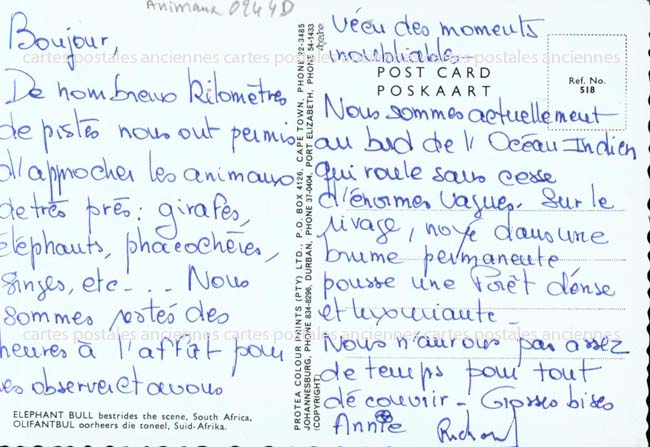 Animaux 0244D
Boujour,
De nombreux kilomètres
de pistes nous ont permis
d'approcher les animaux
de très près : girafes,
éléphants, phacochères,
singes, etc - . . . Nous
sommes restés des
heures à l'affût pour
les observer et avons
ELEPHANT BULL bestrides the scene, South Africa.
OLIFANTBUL oorheers die toneel, Suid-Afrika.
PROTEA COLOUR PRINTS (PTY) LTD., P.O. BOX 4126, CAPE TOWN, PHONE 22-3485
JOHANNESBURG, PHONE 834-8296, DURBAN, PHONE 37-0404, PORT ELIZABETH, PHONE 54-1433
(COPYRIGHT)
vécu des moments
inoubliables -
POST CARD
POSKAART
Ref. No.
518
Nous sommes actuellement
au bord de l'Océan Indien
qui roule sans cesse
d'énormes vagues. Sur le
rivage, noyé dans une
brume permanente
pousse une forêt dense
et luxuriante -
Nous n'aurons pas assez
de temps pour tout
découvrir - Grosses bises
Annie Richard
cartes postales anciennes cartes postales anciennes cartes postales anciennes
cartes postales anciennes cartes postales anciennes cartes postales anciennes